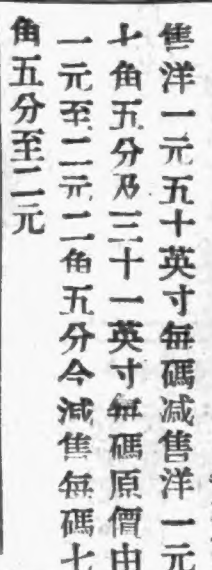 售洋一元五十英寸每碼减售洋一元
七角五分及三十一英寸每碼原價由
一元至二元二角五分今减售每碼七
角五分至二元